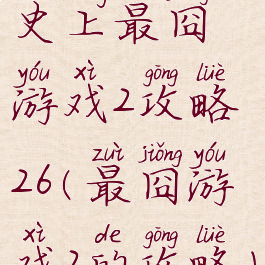 史上最囧
yóu xì gōng lüè
游戏2攻略
zuì jiǒng yóu
26(最囧游
xì de gōng lüè
戏2的攻略)